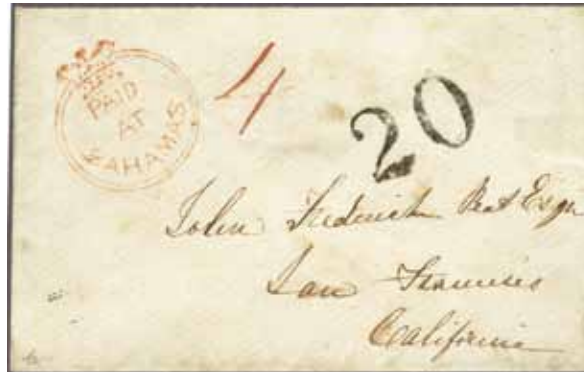 PAID
AT
BAHAMAS
4
20
John Frederick Esqr
San Francisco
California